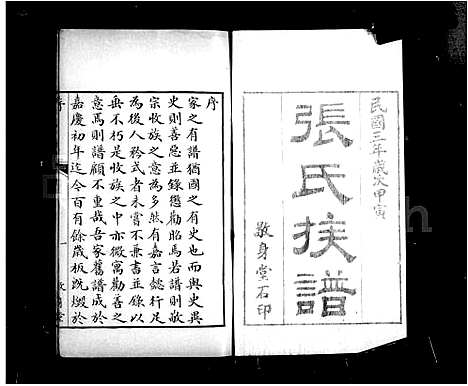 民國三年歲次甲寅
張氏族譜
敬身堂石印
序
家之有譜猶國之有史也而與史異
史則善惡並錄懲勸昭焉若譜則敬
宗收族之意為多然有嘉言懿行足
為後人矜式者未嘗不兼書並錄以
垂不朽是收族之中亦微寓勸善之
意焉則譜顧不重哉吾家舊譜成於
嘉慶初年迄今百有餘歲板既燬於
序
一
敬身堂